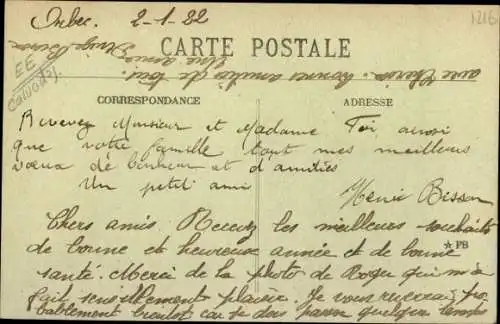 Orbec. 2-1-32
1216
CARTE POSTALE
EE
Calvados.
avec Chérie. bonnes amitiés de tous.
Une amie
CORRESPONDANCE
ADRESSE
Recevez Monsieur et Madame aussi
que votre famille tout mes meilleurs
vœux de bonheur et d'amitiés
Un petit ami
Henri Bisson
Chers amis Recevez les meilleurs souhaits
de bonne et heureuse année et de bonne
★ PB
santé. Merci de la photo de Roger qui m'a
fait sensiblement plaisir. Je vous reverrai pro
bablement bientot car je pense quelque temps